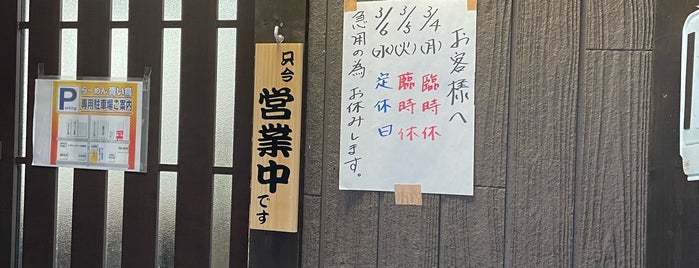 お客様へ
3/4 (月) 臨時休
3/5 (火) 臨時休
3/6 (水) 定休日
急用の為 お休みします。
只今
営業中
です
P
らーめん 青い鳥
専用駐車場ご案内